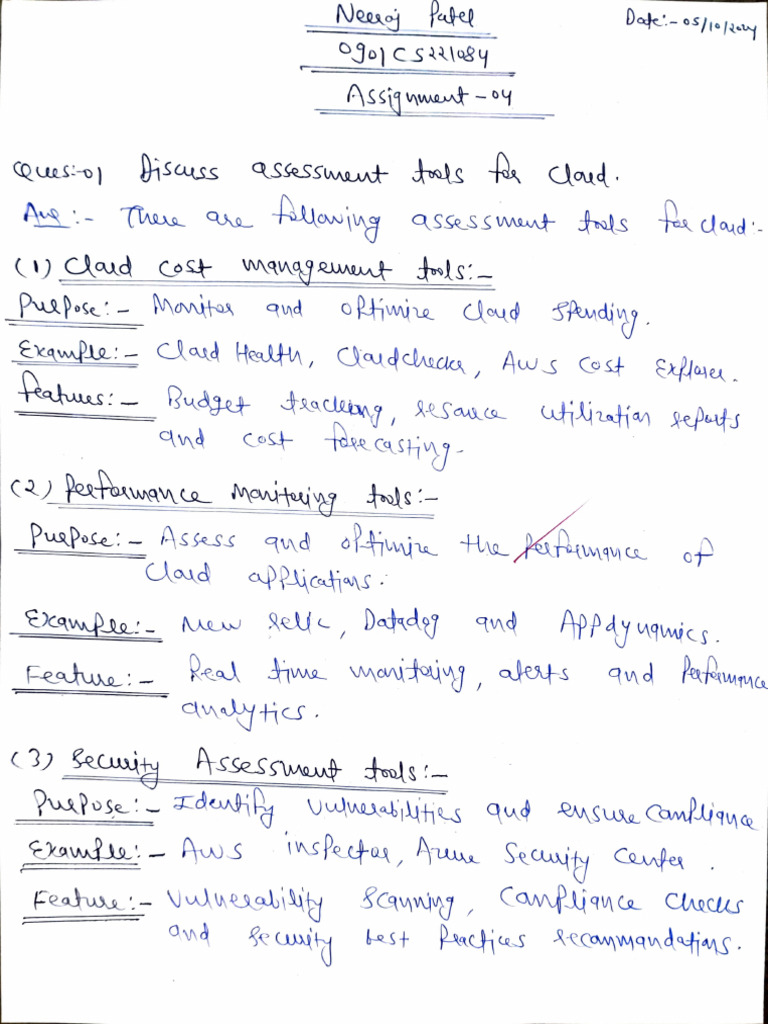 Neeraj Patel
Date:- 05/10/2024
0901CS221084
Assignment-04
Ques:-01 Discuss assessment tools for Cloud.
Ans:- There are following assessment tools for cloud:-
(1) Cloud cost management tools:-
Purpose:- Monitor and optimize cloud spending.
Example:- Cloud Health, Cloudcheckr, AWS cost Explorer.
Features:- Budget tracking, resource utilization reports
and cost forecasting.
(2) Performance Monitoring tools:-
Purpose:- Assess and optimize the performance of
cloud applications.
Example:- New Relic, Datadog and Appdynamics.
Feature:- Real time monitoring, alerts and performance
analytics.
(3) Security Assessment tools:-
Purpose:- Identify vulnerabilities and ensure compliance
Example:- AWS inspector, Azure Security Center.
Feature:- Vulnerability scanning, Compliance checks
and security best practices recommandations.